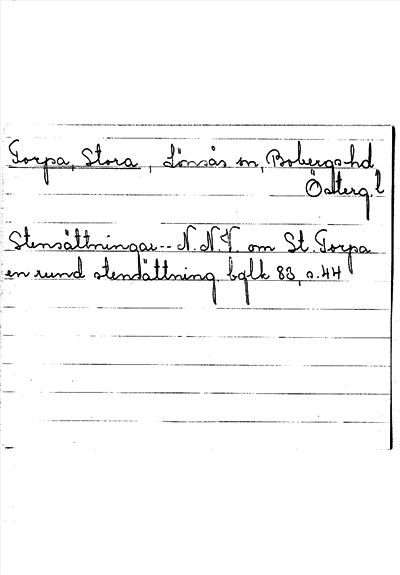 Torpa, Stora, Lönsås sn, Bobergs hd,
Österg.l
Stensättningar-- N.N.V. om St. Torpa
en rund stensättning bglk 83, s.44